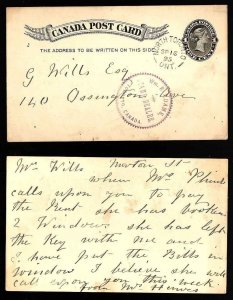 CANADA POST CARD
THE ADDRESS TO BE WRITTEN ON THIS SIDE.
NORTH TORONTO
SP 18
95
ONT.
G Wills Esq
140 Ossington Ave
Mr Wills Newton St
when Mr
calls upon you to pay
the Rent she has broken
2 Windows she has left
the Key with me and
I have put the Bills in
window I believe she will
call upon you this week
from Mr Hawes